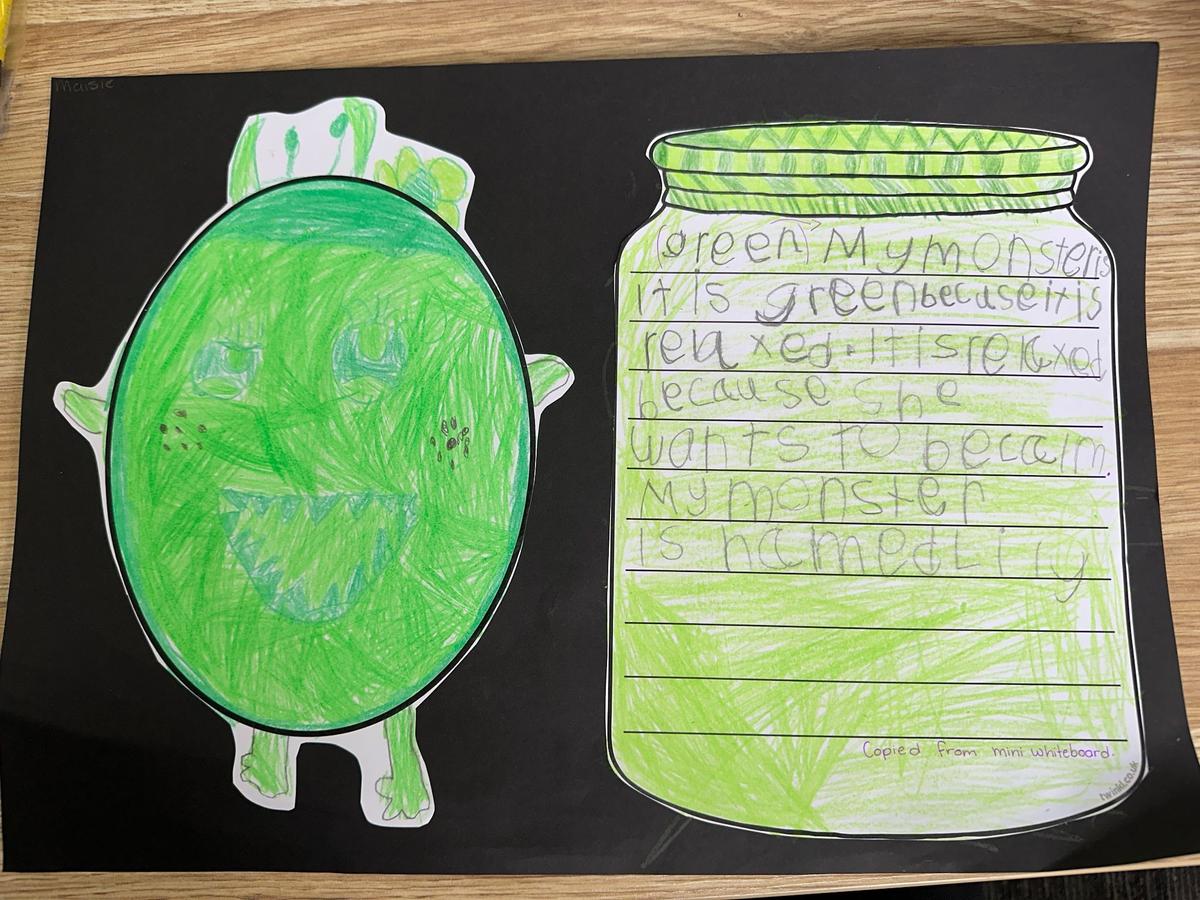 Maisie
(green) My monster is
it is green becuse it is
relaxed. It is relaxed
because she
wants to becalm.
My monster
is named Lily
Copied from mini whiteboard.
twinkl.co.uk